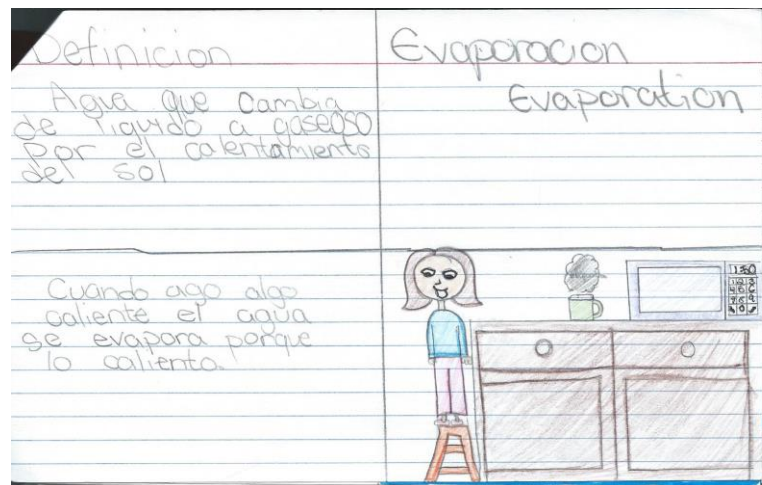 Definicion
Agua que cambia
de liquido a gaseoso
por el calentamiento
del sol
Evaporacion
Evaporation
Cuando ago algo
caliente el agua
se evapora porque
lo caliento.
1:30
1 2 3
4 5 6
7 8 9
0